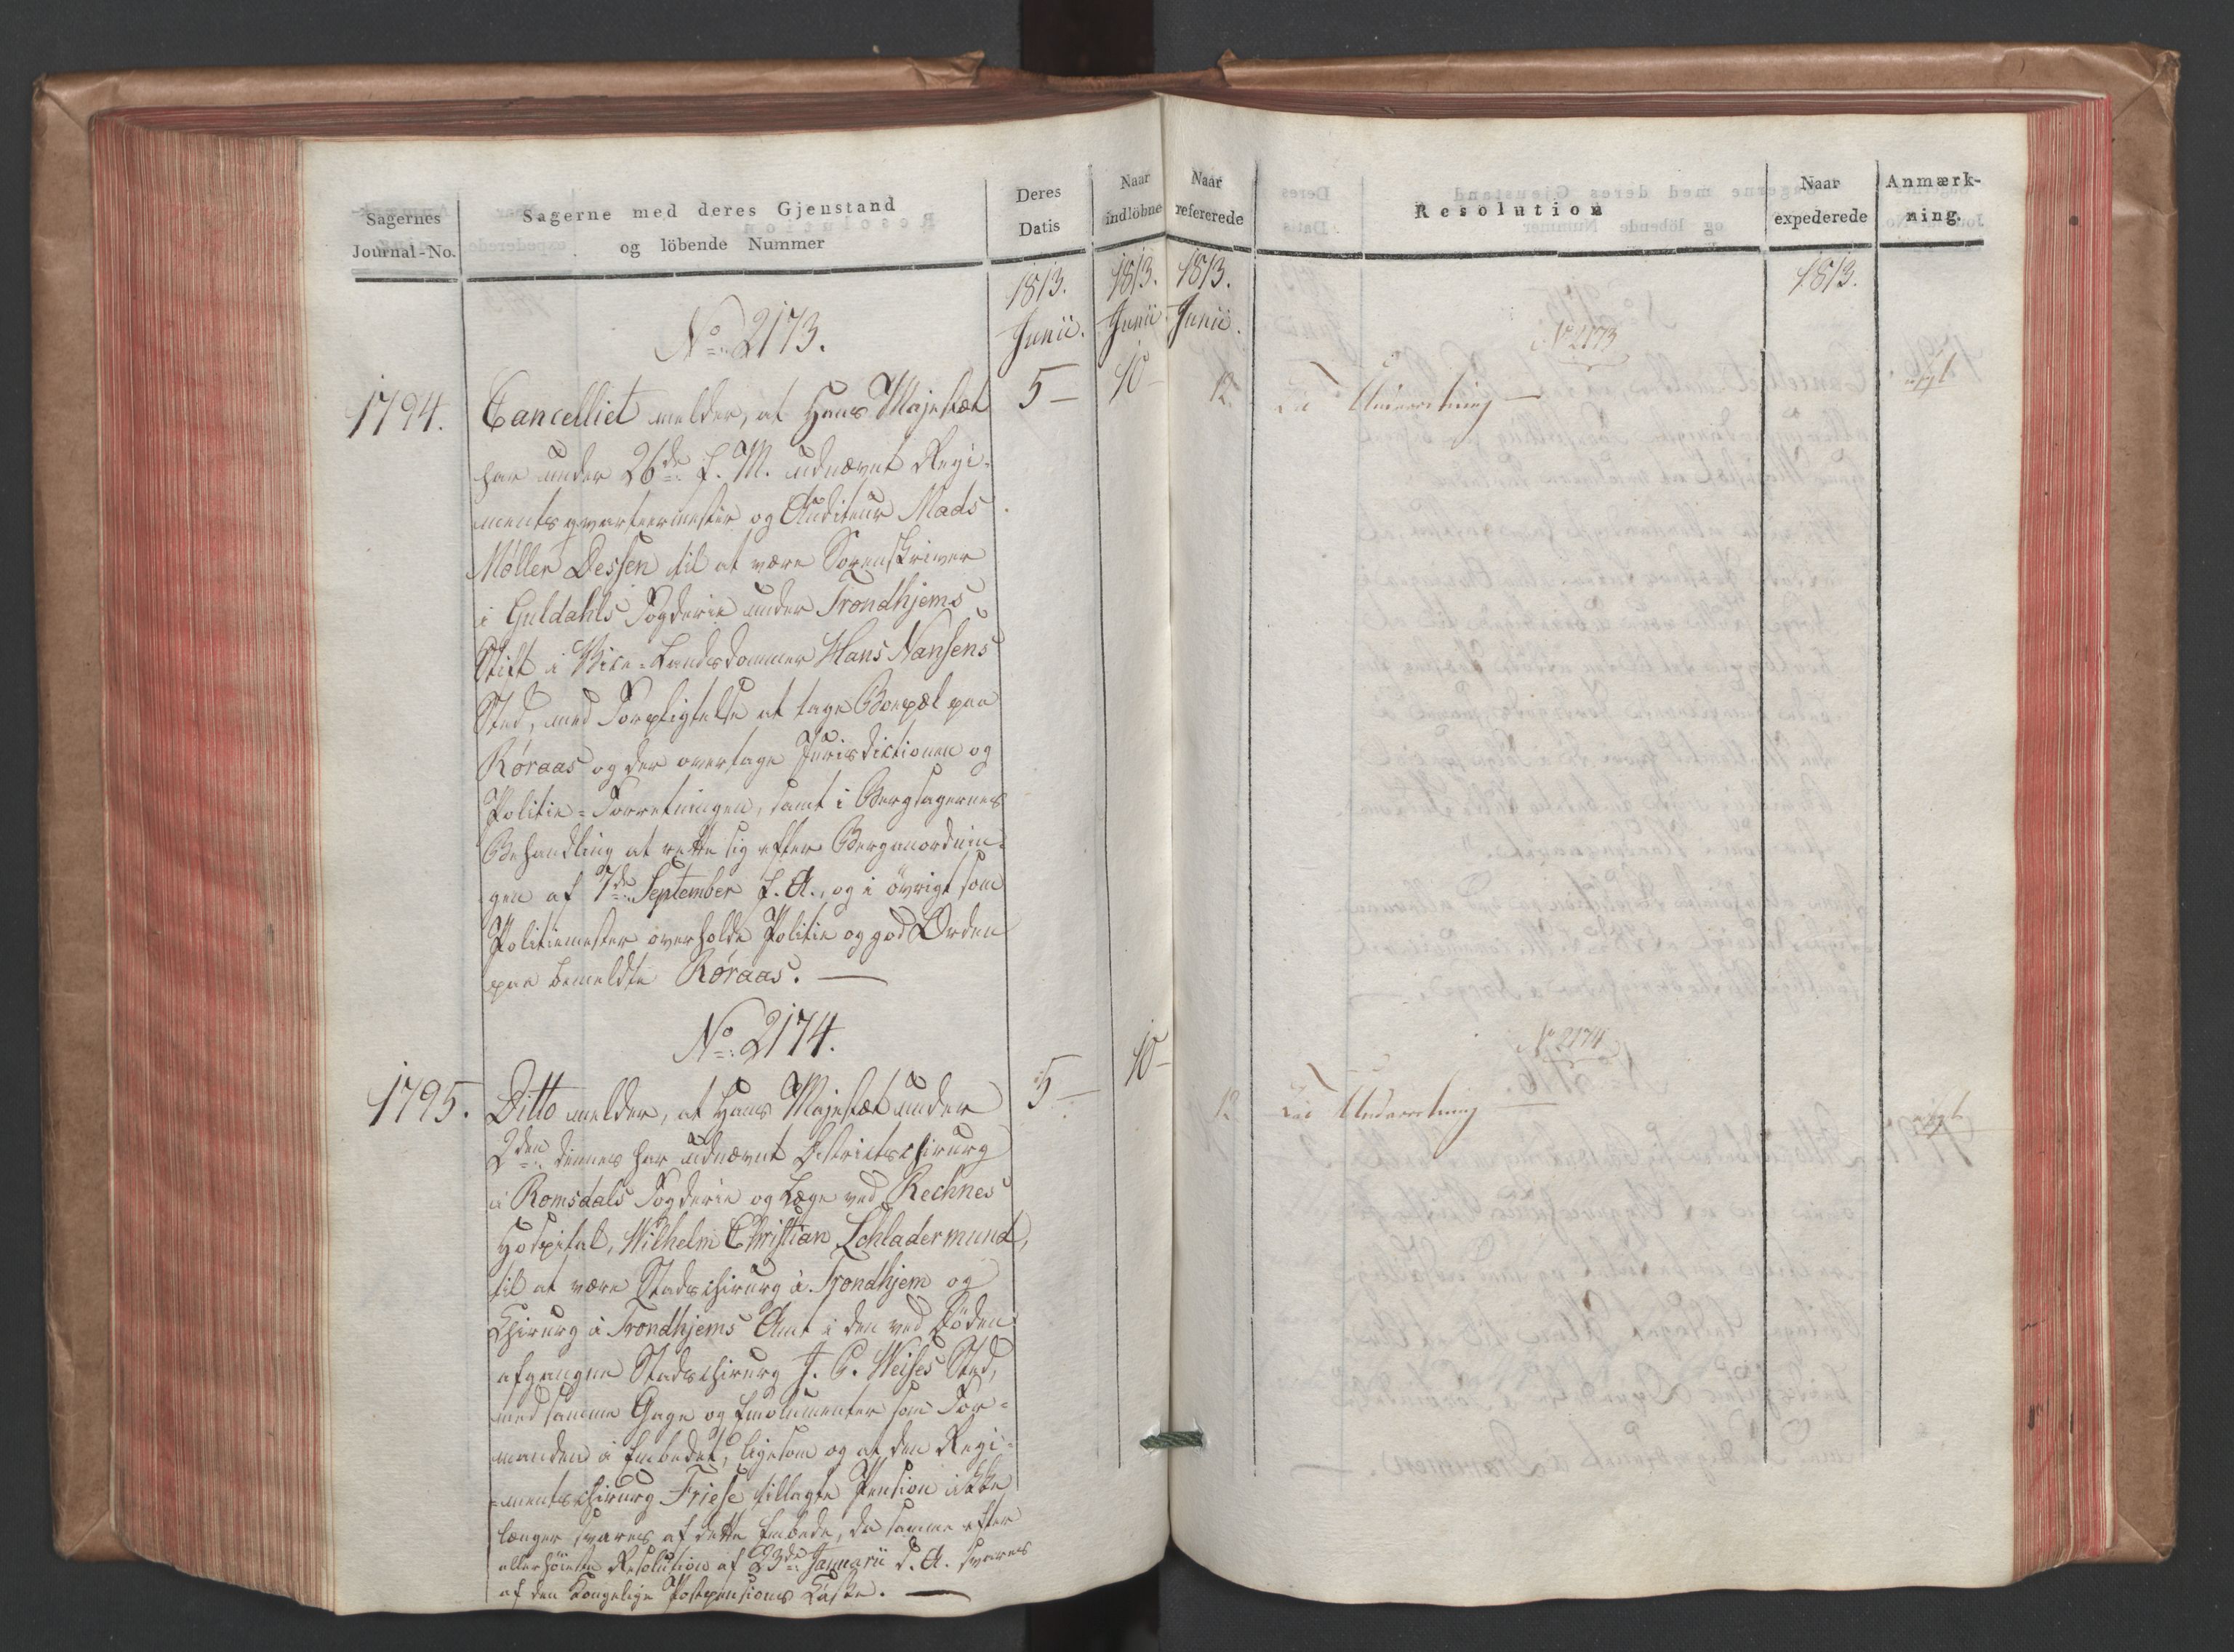 Sagernes
Journal-No.
Sagerne med deres Gjenstand
og löbende Nummer
Deres
Datis
Naar
indlöbne
1813.
Junii.
1813.
Junii
No. 2173.
1794.
Cancelliet melder, at Hans Majestæt
5 —
10 —
har under 26de f. M. udnævnt Regi-
mentsqvarteermester og Auditeur Mads
Møller Dessen til at være Sorenskriver
i Guldahls Fogderie under Trondhjems
Stift i Vice-Landsdommer Hans Nansens
Sted, med Forpligtelse at tage Boepæl paa
Røraas og der overtage Jurisdictionen og
Politie-Forretningen, samt i Bergsagernes
Behandling at rette sig efter Berganordnin-
gen af 7de September f. A., og i övrigt som
Politiemester overholde Politie og god Orden
paa bemeldte Røraas. —
No. 2174.
1795.
Ditto melder, at Hans Majestæt under
5 —
10 —
2den dennes har udnævnt Districtschirurg
i Romsdals Fogderie og Læge ved Rechnes
Hospital, Wilhelm Christian Schladermund,
til at være Stadschirurg i Trondhjem og
Chirurg i Trondhjems Amt i den ved Döden
afgangne Stadschirurg J. C. Weises Sted,
med samme Gage og Emolumenter som For-
manden i Embedet, ligesom og at den Regi-
mentschirurg Friese tillagte Pension ikke
længer svares af dette Embede, da samme efter
allerhöieste Resolution af 23de Januarii d. A. svares
af den Kongelige Postpensions Casse. —
Naar
refererede
Resolution
Naar
expederede
Anmærk-
ning.
1813.
Junii.
1813.
No 2173
12
Underretning —
No 2174
12
Underretning —